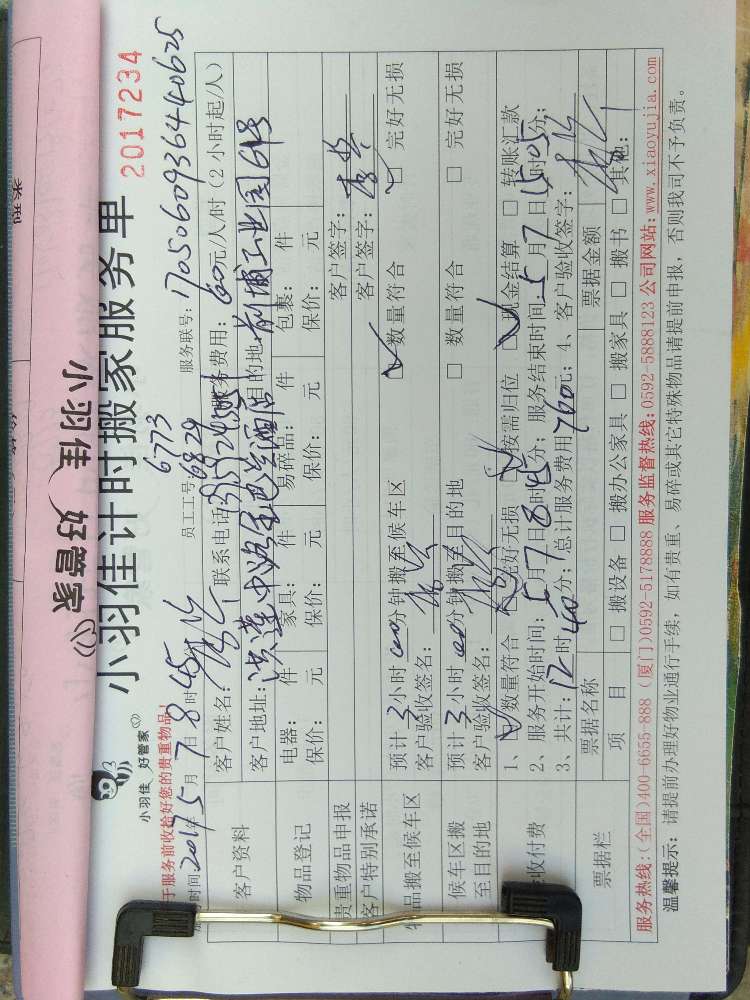 小羽佳 好管家
小羽佳 好管家
小羽佳计时搬家服务单 2017234
于服务前收拾好您的贵重物品!
时间: 2017年5月7日8时45 员工工号: 6773 6829 服务联号: 17050609364440625
客户资料 客户姓名: 联系电话: 服务费用: 60元/人/时(2小时起/人)
客户地址: 目的地: 前埔工业园61号
物品登记 电器: 件 家具: 件 易碎品: 件 包裹: 件
保价: 元 保价: 元 保价: 元 保价: 元
贵重物品申报 客户签字:
客户特别承诺 客户签字:
品搬至候车区 预计 3 小时 00 分钟搬至候车区 □ 数量符合 □ 完好无损
客户验收签名:
候车区搬至目的地 预计 3 小时 00 分钟搬至目的地 □ 数量符合 □ 完好无损
客户验收签名:
验收付费 1、□ 数量符合 □ 完好无损 □ 按需归位 □ 现金结算 □ 转账汇款
2、服务开始时间: 5月7日8时45分; 服务结束时间: 5月7日15时05分;
3、共计: 12时40分; 总计服务费用 760元; 4、客户验收签字:
票据栏 票据名称 票据金额
项 目 □ 搬设备 □ 搬办公家具 □ 搬家具 □ 搬书 □ 其他:
服务热线:(全国)400-6655-888 (厦门)0592-5178888 服务监督热线:0592-5888123 公司网站:www.xiaoyujia.com
温馨提示: 请提前办理好物业通行手续, 如有贵重、易碎或其它特殊物品请提前申报, 否则我司不予负责。